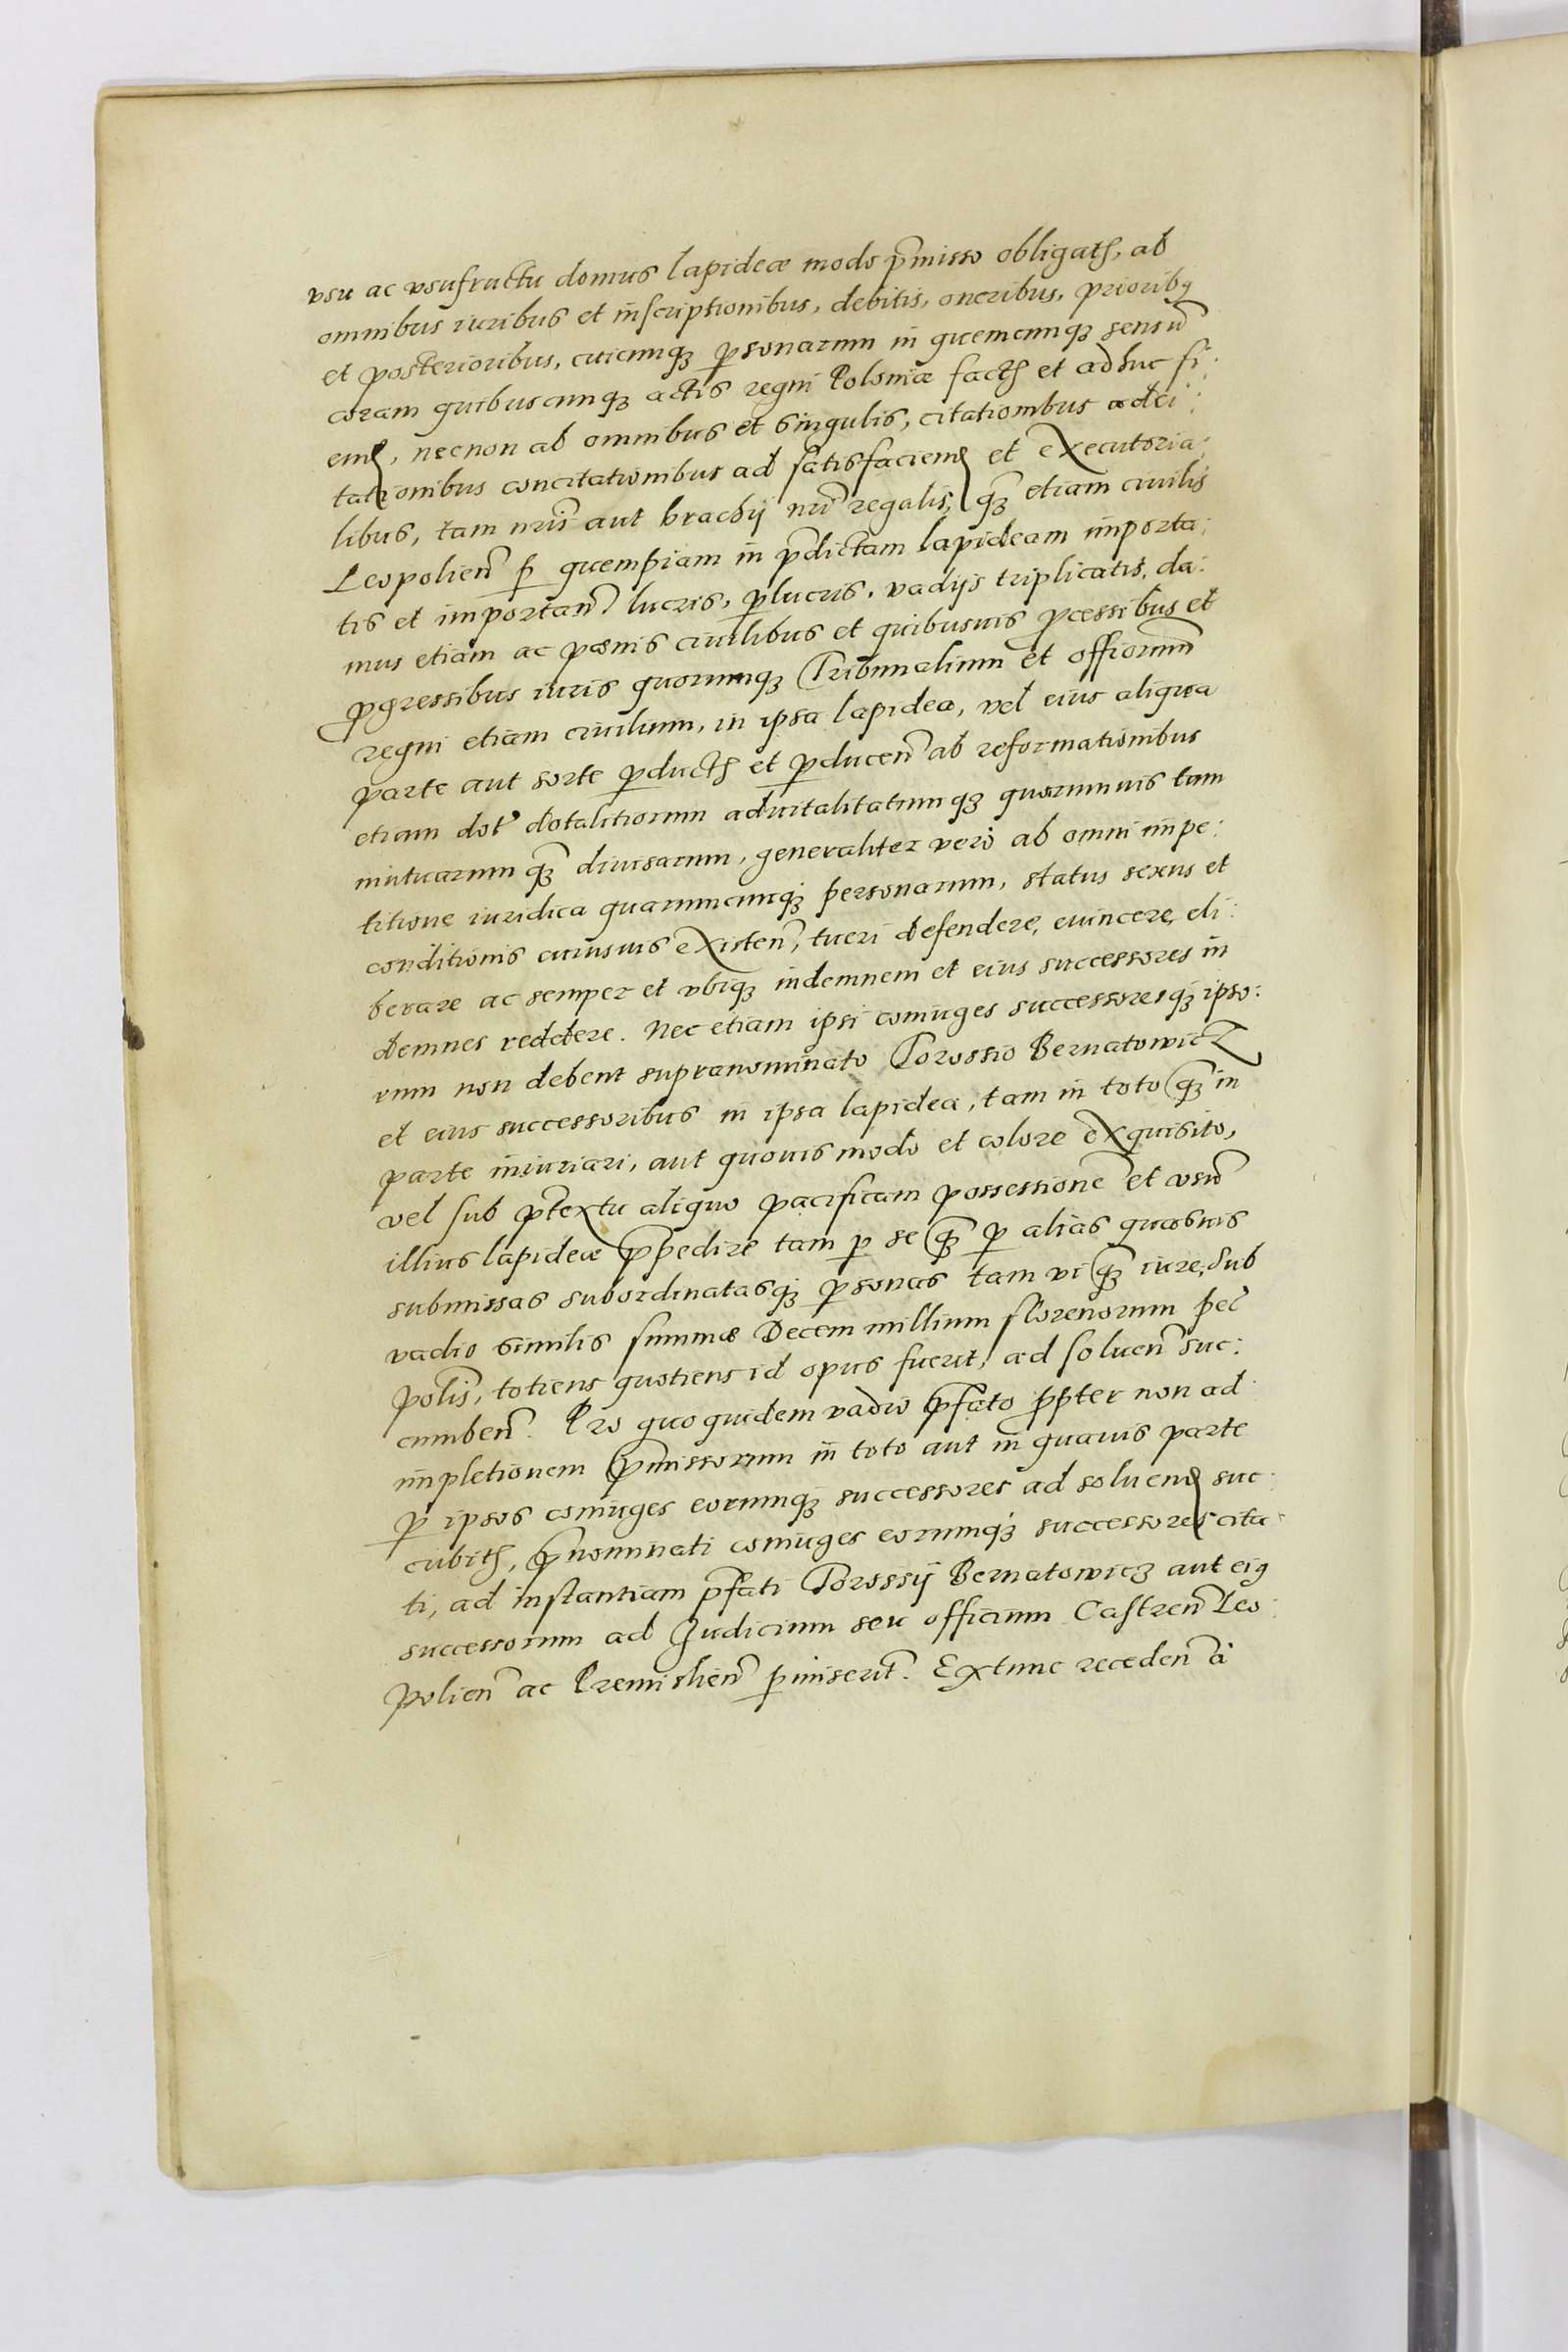 vsu ac vsufructu domus lapideæ modo p̄misso obligatꝭ, ab
omnibus iuribus et inscriptionibus, debitis, oneribus, prioribꝯ
et posterioribus, cuicunqꝫ ꝑsonarum in quemcunqꝫ sensū
coram quibuscunqꝫ actis regni Poloniæ factꝭ et adhuc fi:
enꝭ, necnon ab omnibus et singulis, citationibus adci:
tationibus concitationibus ad satisfacienꝭ et executoria:
libus, tam nr̄is aut brachij nr̄i regalis, qꝫ̄ etiam ciuilis
Leopolien̄ ꝑ quempiam in p̄dictam lapideam importa:
tis et importan̄ lucris, ꝑlucris, vadijs triplicatis, da:
mus etiam ac pœnis ciuilibus et quibusuis ꝓcessibus et
ꝓgressibus iuris quorumqꝫ Tribunalium et offiorum̄
regni etiam ciuilium, in ipsa lapidea, vel eius aliqua
parte aut sorte ꝑductꝭ et ꝑducen̄ ab reformationibus
etiam dot̄ dotalitiorum aduitalitatumqꝫ quorumuis tam
mutuarum qꝫ̄ diuisarum, generaliter verò ab omni impe:
titione iuridica quarumcunqꝫ personarum, status sexus et
conditionis cuiusuis existen̄, tueri defendere, euincere, eli:
berare ac semper et vbiqꝫ indemnem et eius successores in
demnes reddere. Nec etiam ipsi coniuges successoresqꝫ ipso:
rum non debent supranominato Torossio Bernatowicz
et eius successoribus in ipsa lapidea, tam in toto qꝫ̄ in
parte iniuriari, aut quouis modo et colore exquisito,
vel sub p̄textu aliquo pacificam possessionē et vsū
illius lapideæ p̄pedire tam ꝑ se qꝫ̄ ꝑ alias quasuis
submissas subordinatasqꝫ ꝑsonas tam vi qꝫ̄ iure, sub
vadio similis summæ Decem millium florenorum pec̄
polīs, totiens quotiens id opus fuerit, ad soluen̄ suc:
cumben̄. Pro quo quidem vadio p̄fato ꝓpter non ad
impletionem p̄missorum in toto aut in quauis parte
ꝑ ipsos coniuges eorumqꝫ successores ad soluenꝭ suc:
cubitꝭ, p̄nominati coniuges eorumqꝫ successores cita:
ti, ad instantiam p̄fati Torossij Bernatowicz aut eiꝯ
successorum ad Judicium seu officium Castren̄ Leo:
polien̄ ac Premislien̄ ꝑuiserit̄. Extunc receden̄ à